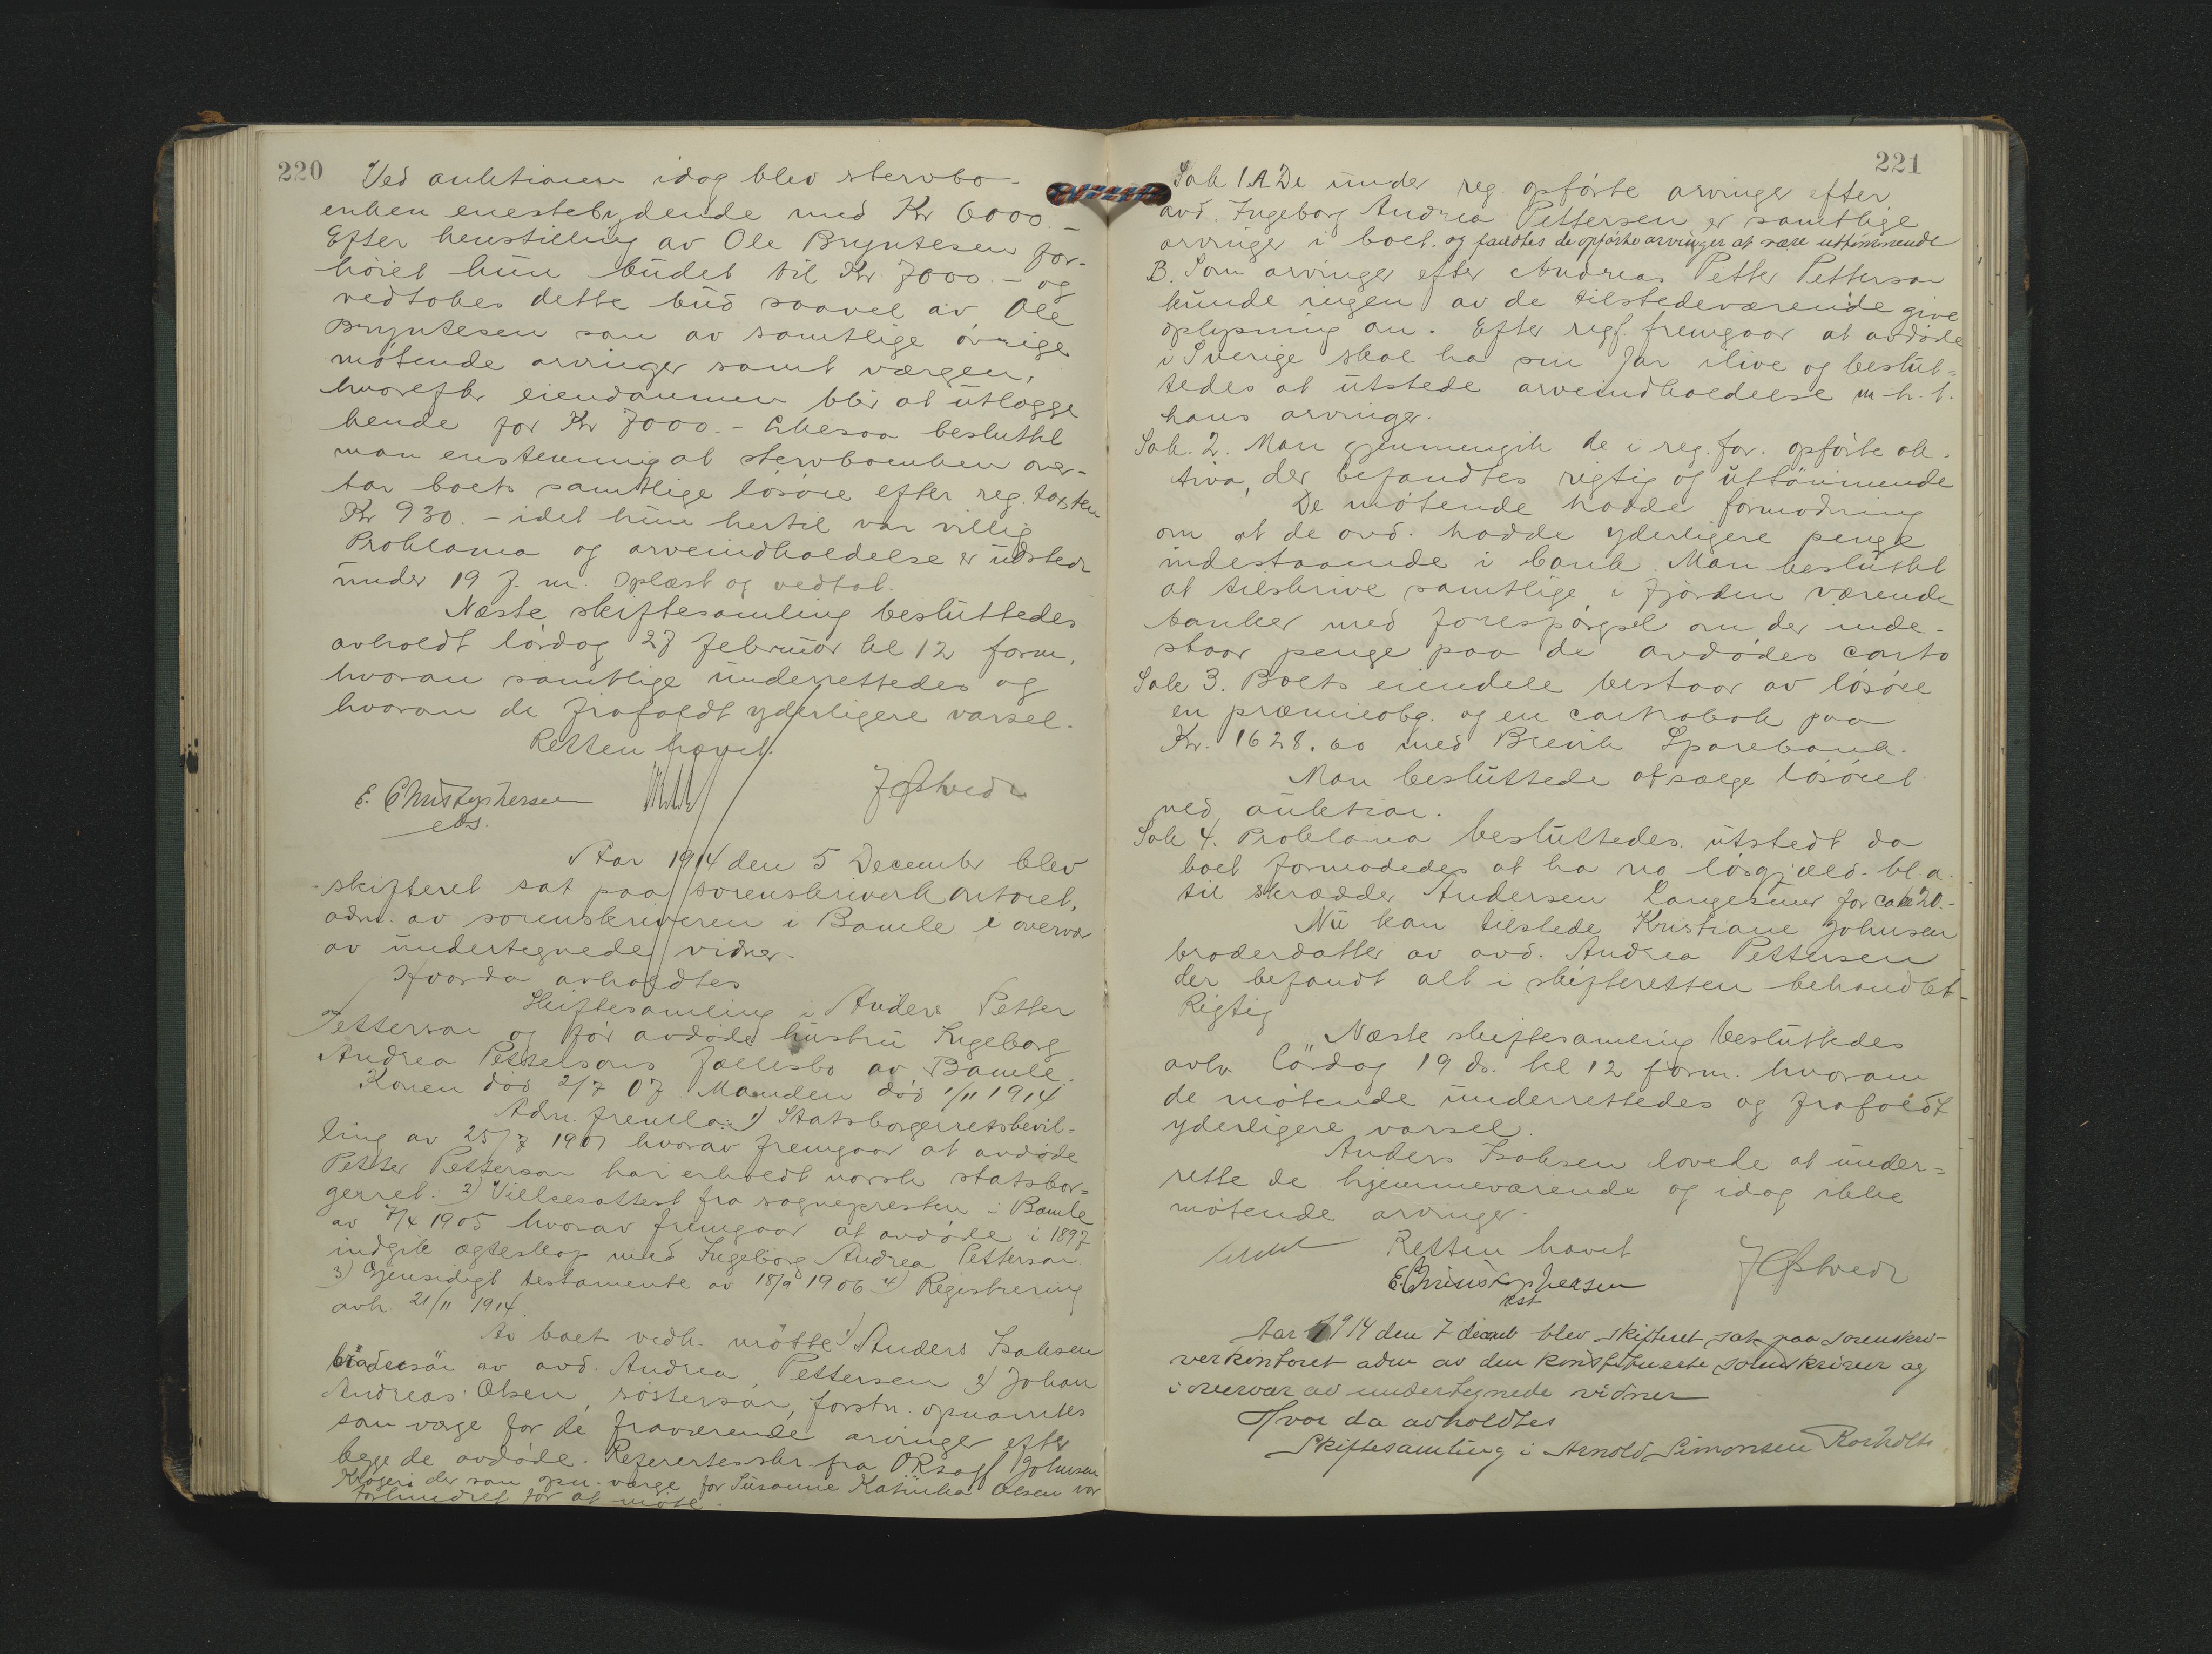 220
Ved auktionen idag blev stervbo-
enken enestebydende med Kr 6000.-
Efter henstilling av Ole Bryntesen for-
høiet hun budet til Kr. 7000.- og
vedtokes dette bud saavel av Ole
Bryntesen som av samtlige øvrige
møtende arvinger samt værgen,
hvorefter eiendommen blir at utlægge
hende for Kr 7000.- Likesaa besluttet
man enstemmig at stervboenken over-
tar boets samtlige løsøre efter reg. taxten
Kr 930.- idet hun hertil var villig
Proklama og arveindkaldelse er udstedt
under 19 f. m. Oplæst og vedtat.
Næste skiftesamling besluttedes
avholdt lørdag 27 februar kl 12 form.
hvorom samtlige underrettedes og
hvorom de frafaldt yderligere varsel.
Retten hævet.
E. Christophersen
cst.
J Østvedt
Aar 1914 den 5 December blev
skifteret sat paa sorenskriverkontoret,
adm. av sorenskriveren i Bamle i overvær
av undertegnede vidner.
Hvorda avholdtes
Skiftesamling i Anders Petter
Petterson og før avdøde hustru Ingeborg
Andrea Pettersons fællesbo av Bamle.
Konen død 2/7 07 Manden død 1/11 1914
Adm. fremla: 1) Statsborgerretsbevil-
ling av 25/7 1901 hvorav fremgaar at avdøde
Petter Petterson har erholdt norsk statsbor-
gerret. 2) Vielsesattest fra sognepresten i Bamle
av 7/4 1905 hvorav fremgaar at avdøde i 1897
indgik ægteskap med Ingeborg Andrea Petterson
3) Gjensidigt testamente av 18/9 1906 4) Registrering
avh. 21/11 1914.
Av boet vedk. møtte 1) Anders Isaksen
brodersøn av avd. Andrea Pettersen 2) Johan
Andreas Olsen, søstersøn, forstn. opnævntes
som værge for de fraværende arvinger efter
begge de avdøde. Refertes skr. fra ORsagf Johnsen
Kragerø der som opn. værge for Susanne Katinka Olsen var
forhindret for at møte.
221
Sak 1. A De under reg. opførte arvinger efter
avd. Ingeborg Andrea Pettersen er samtlige
arvinger i boet. og fandtes de opførte arvinger at være uttømmende
B. Som arvinger efter Andreas Petter Petterson
kunde ingen av de tilstedeværende give
oplysning om. Efter regf. fremgaar at avdøde
i Sverige skal ha sin far ilive og beslut-
tedes at utstede arveindkaldelse m. h. t.
hans arvinger.
Sak. 2. Man gjennemgik de i reg. for. opførte ak-
tiva, der befandtes rigtig og uttømmende
De møtende hadde formodning
om at de avd. hadde yderligere penge
indestaaende i bank. Man besluttet
at tilskrive samtlige i fjorden værende
banker med forespørgsel om der inde-
staar penge paa de avdødes conto
Sak 3. Boets eiendele bestaar av løsøre
en præmieobg. og en contrabok paa
Kr. 1628.60 med Brevik Sparebank.
Man besluttede at sælge løsøret
ved auktion.
Sak 4. Proklama besluttedes utstedt da
boet formodedes at ha no løsgjæld bl. a.
til skrædder Andersen Langesund for ca kr 20.-
Nu kom tilstede Kristiane Johnsen
broderdatter av avd. Andrea Pettersen
der befandt alt i skifteretten behandlet
Rigtig
Næste skiftesamling besluttedes
avh. lørdag 19 ds. kl 12 form. hvorom
de møtende underrettedes og frafaldt
yderligere varsel.
Anders Isaksen lovede at under-
rette de hjemmeværende og idag ikke
møtende arvinger.
Retten hævet
E. Christophersen
cst
J Østvedt
Aar 1914 den 7 decemb blev skifteret sat paa sorenskri-
verkontoret adm av den konstituerte sorenskriver og
i overvær av undertegnede vidner
Hvor da avholdtes
Skiftesamling i Arnold Simonsen Rosholts